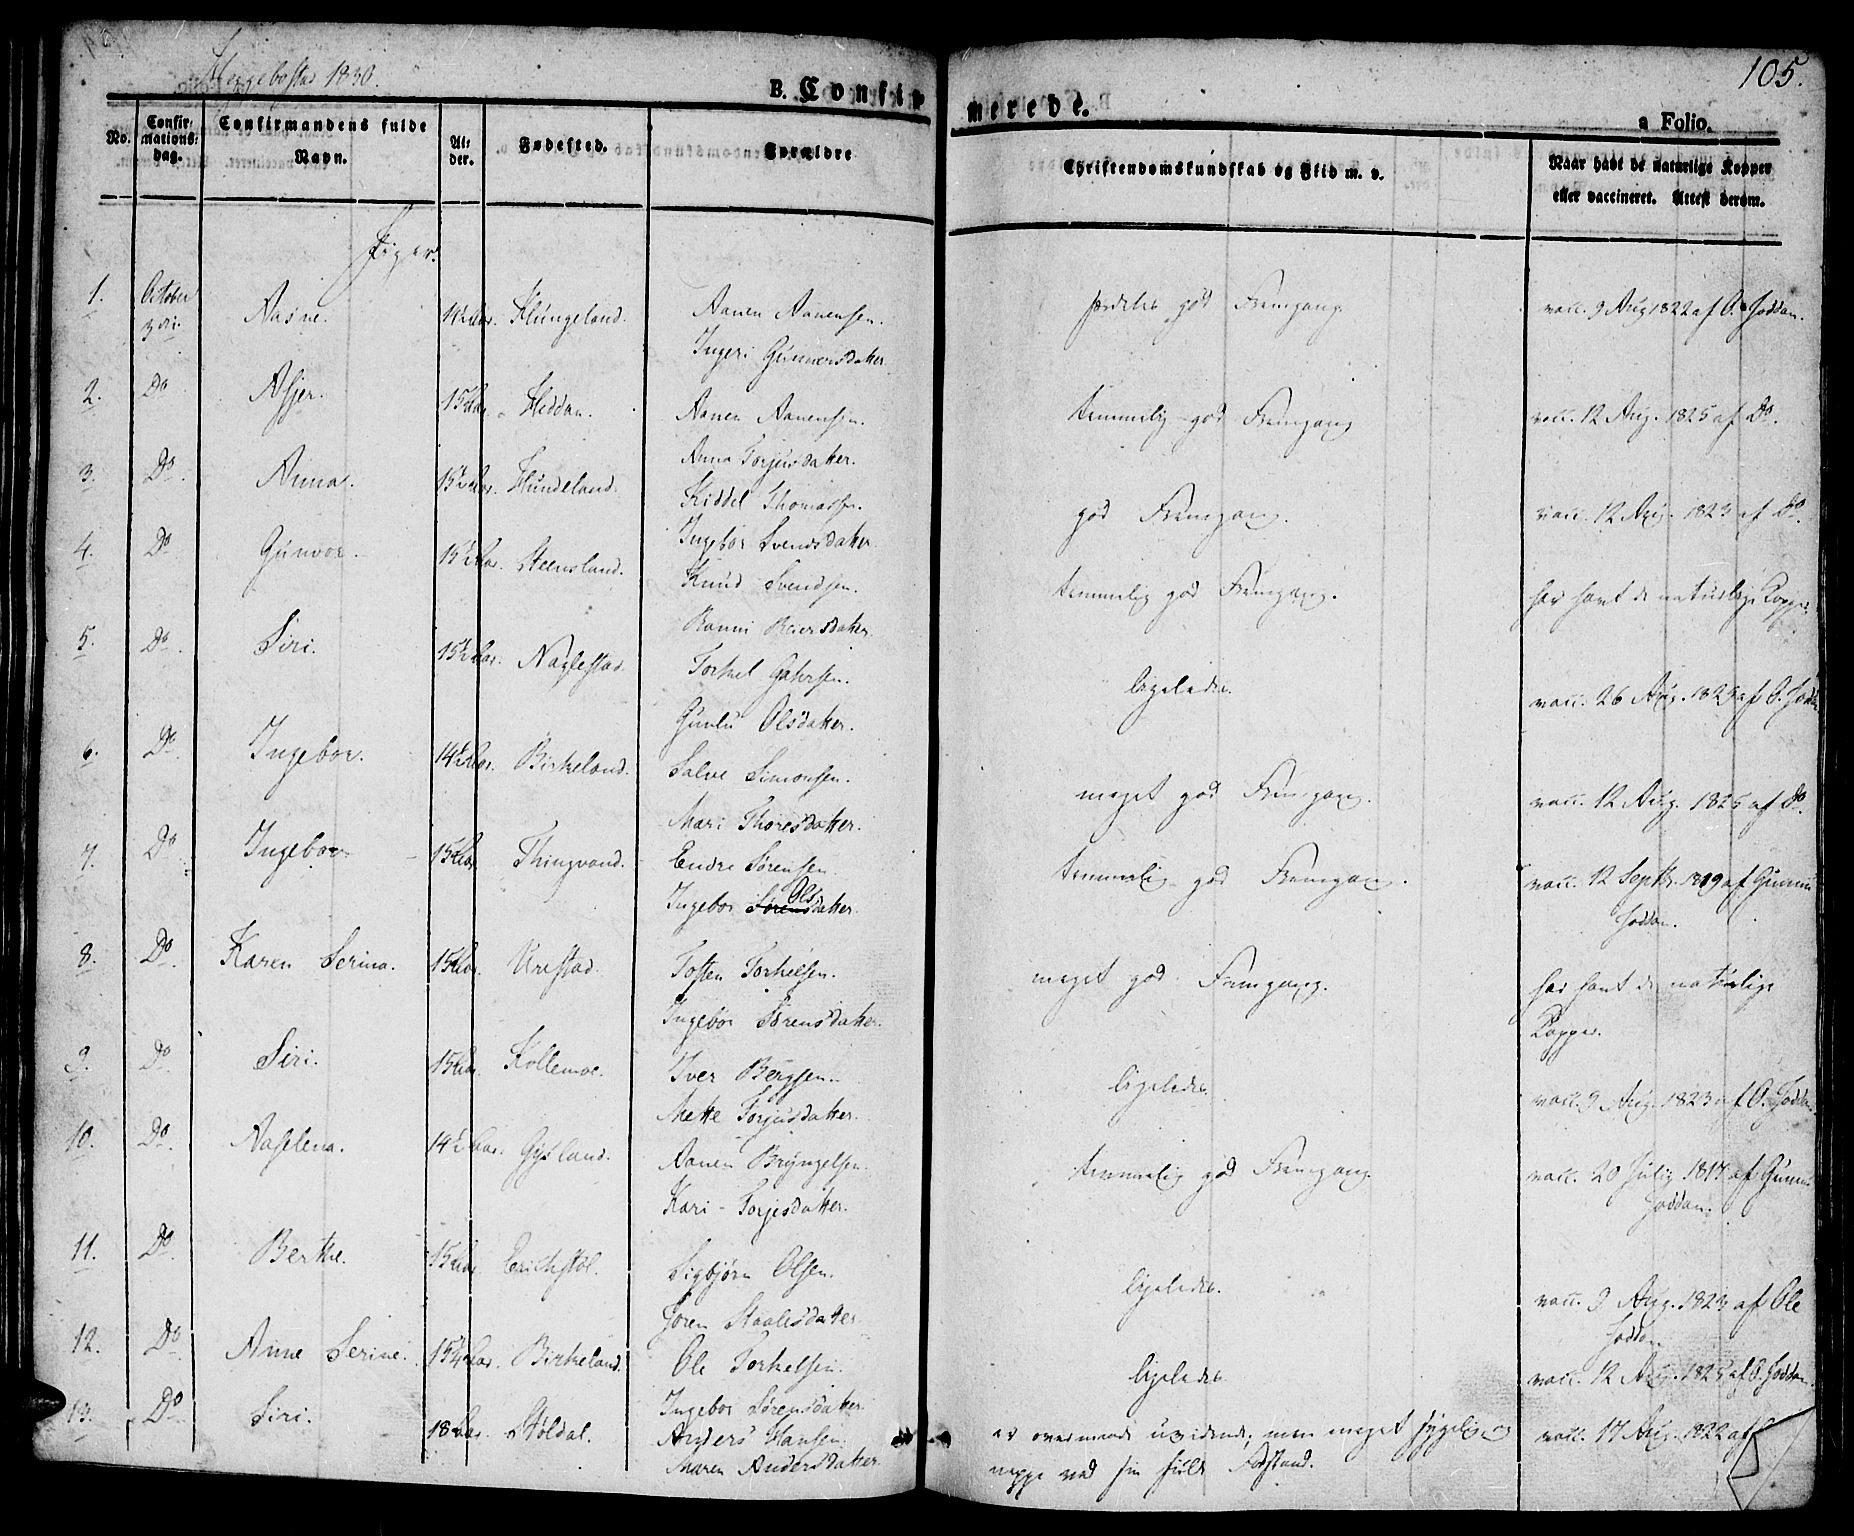 Heggebostad 1830.
105.
B. Confirmerede.
a Folio.
No. | Confirmationsdag. | Confirmandens fulde Navn. | Alder. | Fødested. | Forældre | Christendomskundskab og Flid m. v. | Naar havt de naturlige Kopper eller vaccineret. Attest derom.
Piger.
1. October 3die. Aasne. 14½ Aar. Klungeland. Aanen Aanensen. særdeles god Fremgang. vacc. 9 Aug 1822 af O. Hoddan.
Ingeri Gunnersdatter.
2. Do Asjer. 15 Aar. Heddan. Aanen Aanensen. temmelig god Fremgang vacc. 12 Aug. 1825 af Do.
Anna Torjusdatter.
3. Do. Anna. 15½ Aar. Hundeland. Kiddel Thomassen. god Fremgang. vacc. 12 Aug. 1823 af Do.
Ingebor Svendsdatter
4. Do Gunvor. 15½ Aar. Steensland. Knud Svendsen. temmelig god Fremgang. har havt de naturlige Kopper.
Ranni Reiersdatter
5. Do. Siri. 15½ Aar. Naglestad. Torkel Gahrsen. ligeledes. vacc. 26 Aug. 1825 af O. Hoddan
Gunlu Olsdatter.
6. Do Ingebor. 14½ Aar. Birkeland. Salve Simonsen. meget god Fremgang. vacc. 12 Aug. 1825 af Do.
Mari Thoresdatter.
7. Do Ingebor 15 Aar Thingvand. Endre Sørensen temmelig god Fremgang. vacc. 12 Septbr. 1819 af Gunnu
Ingebor Sørens Olsdatter. Hoddan.
8. Do. Karen Serina. 15 Aar. Urestad. Tosten Torkelsen. meget god Fremgang. har havt de naturlige
Ingebor Sørensdatter. Kopper.
9. Do. Siri. 15 Aar. Kollemoe. Iver Bergsen. ligeledes. vacc. 9 Aug. 1823 af O. Hoddan
Mette Torjusdatter.
10. Do. Aaselena. 14½ Aar. Gysland. Aanen Bryngelsen. temmelig god Fremgang. vacc. 20 July 1817 af Gunnu
Kari Torjesdatter. Hoddan.
11. Do. Berthe. 15 Aar. Erichstøl. Sigbjørn Olsen. ligeledes. vacc. 9 Aug. 1823 af Ole
Jøren Staalesdatter Hoddan
12. Do. Anne Serine. 15¼ Aar. Birkeland. Ole Torkelsen. ligeledes. vacc. 12 Aug. 1825 af O. Hoddan.
Ingebor Sørensdatter
13. Do. Siri. 18 Aar. Støldal. Anders Hansen. er overmaade uvidende, men meget sygelig og vacc. 17 Aug. 1822 af
Maren Andersdatter. neppe ved sin fulde Forstand.